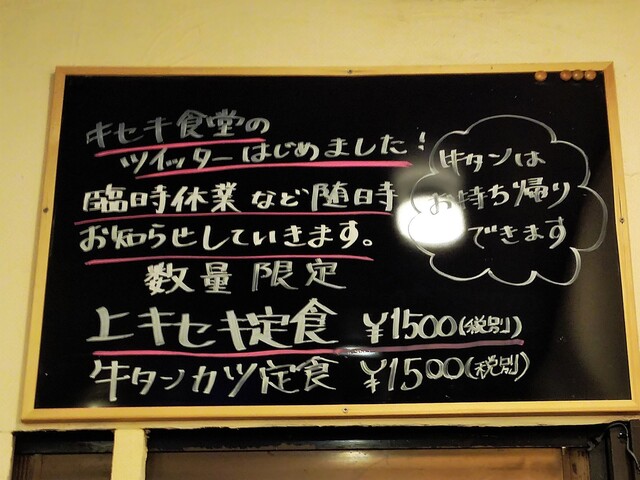 キセキ食堂の
ツイッターはじめました!
臨時休業など随時
お知らせしていきます。
数量限定
上キセキ定食 ¥1500(税別)
牛タンカツ定食 ¥1500(税別)
牛タンは
お持ち帰り
できます